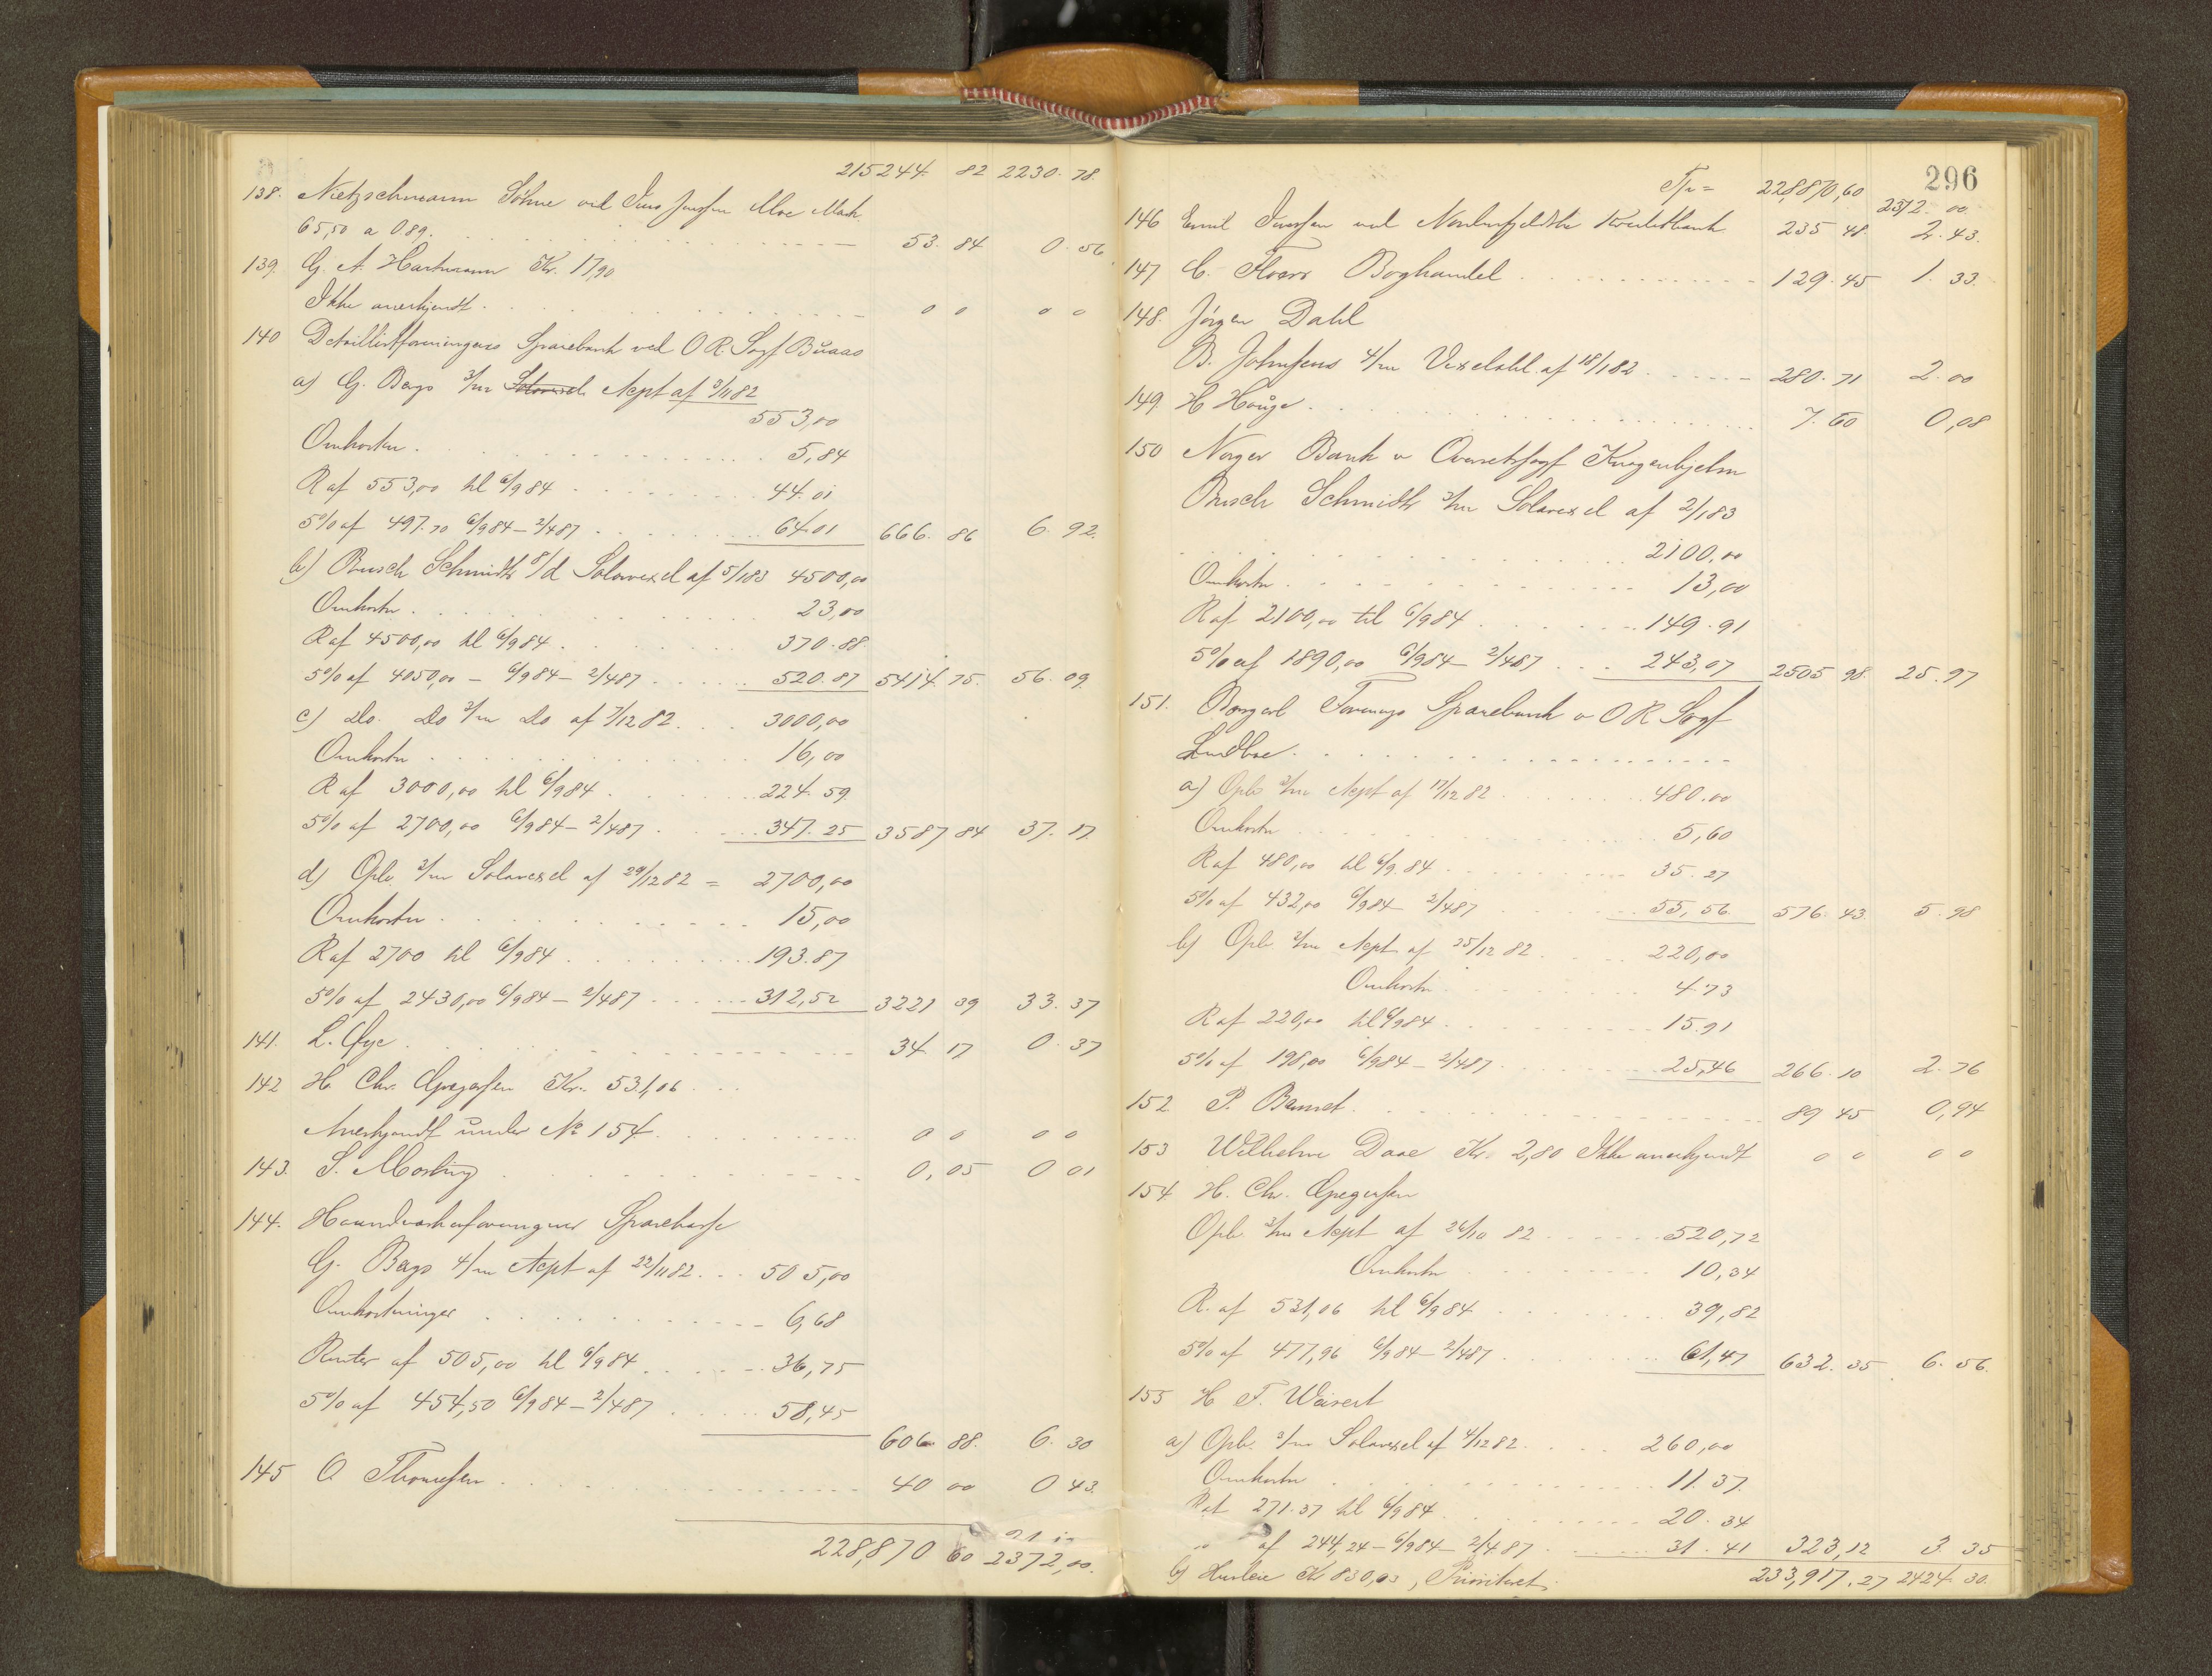 215244. 82 2230. 78.
138. Nietzschmann Söhne ved Jens Jensen Moe Mark
65,50 a 0.89. 53. 84 0. 56.
139. G. A. Hartmann Kr. 17,90
Ikke anerkjendt. 0 0 0 0
140 Detaillistforeningens Sparebank ved O R Sagf Buaas
a) G. Bergs 3/m Acpt af 3/11 82
553,00
Omkostn. 5,84
R af 553,00 til 6/9 84 44.01
5% af 497.70 6/9 84 – 2/4 87 64.01 666. 86 6. 92.
b) Busch Schmidts 8/d Solavexel af 5/1 83 4500,00
Omkostn. 23,00
R af 4500,00 til 6/9 84. 370.88
5% af 4050,00 – 6/9 84 – 2/4 87 520.87 5414. 75. 56. 09.
c) Do. Do 3/m Do af 7/12 82. 3000,00
Omkostn 16,00
R af 3000,00 til 6/9 84. 224.59.
5% af 2700,00 6/9 84 – 2/4 87. 347.25 3587 84 37. 17.
d) Opb. 3/m Solavexel af 29/12 82 = 2700,00
Omkostn. 15,00
R af 2700 til 6/9 84. 193.87
5% af 2430,00 6/9 84 – 2/4 87 312,52 3221 39 33. 37
141. L. Øye. 34 17 0. 37
142 H. Chr. Gregersen Kr. 531,06
Anerkjendt under No 154. 0 0 0 0
143. S. Mosling 0,05 0 01
144. Haandværkerforeningens Sparekasse
G. Bergs 4/m Acpt af 22/11 82. 505,00
Omkostninger 6,68
Renter af 505,00 til 6/9 84 36,75
5% af 454,50 6/9 84 – 2/4 87 58,45
606. 88. 6. 30
145 O Thomesen. 40 00 0 43.
228,870 60 2372,00.
296
Tr = 228,870,60 2372. 00
146 Emil Iversen ved Nordenfjeldske Kreditbank 235 48. 2. 43.
147 C. Floors Boghandel 129. 45 1. 33.
148. Jörgen Dahl
B. Johnsens 4/m Vexelobl. af 18/1 82 280. 71 2. 00
149. H Hauge. 7. 60 0,08
150 Norges Bank v Overretssagf Krogenhjelm
Busch Schmidts 3/m Solavexel af 2/1 83
2100,00
Omkostn. 13,00
R af 2100,00 til 6/9 84 149.91
5% af 1890,00 6/9 84 – 2/4 87 243,07 2505 98. 25. 97
151. Borgerl Forenings Sparebank v O R Sagf
Lindboe.
a) Opb 3/m Acpt af 17/12 82 480.00
Omkostn 5,60
R af 480,00 til 6/9.84. 35.27
5% af 432,00 6/9 84 – 2/4 87 55,56. 576. 43. 5. 98
b) Opb. 3/m Acpt af 25/12 82. 220,00
Omkostn. 4.73
R af 220,00 til 6/9 84. 15.91
5% af 198,00 6/9 84 – 2/4 87. 25,46 266. 10 2. 76
152 P. Bernet. 89 45 0,94
153 Wilhelm Daae Kr. 2,80 Ikke anerkjendt 0 0 0 0
154. H. Chr. Gregersen
Opb. 3/m Acpt af 26/10 82 520,72
Omkostn 10,34
R. af 531,06 til 6/9 84 39,82
5% af 477,96 6/9 84 – 2/4 87. 61,47 632. 35 6. 56.
155 H F. Weisert
a) Opb. 3/m Solavexel af 4/12 82. 260,00
Omkostn 11.37.
R af 271.37 til 6/9 84. 20.34
af 244,24 – 6/9 84 – 2/4 87 31.41 323,12 3. 35
b) Husleie Kr 830,03, Prioriteret. 233,917.27 2424. 30.